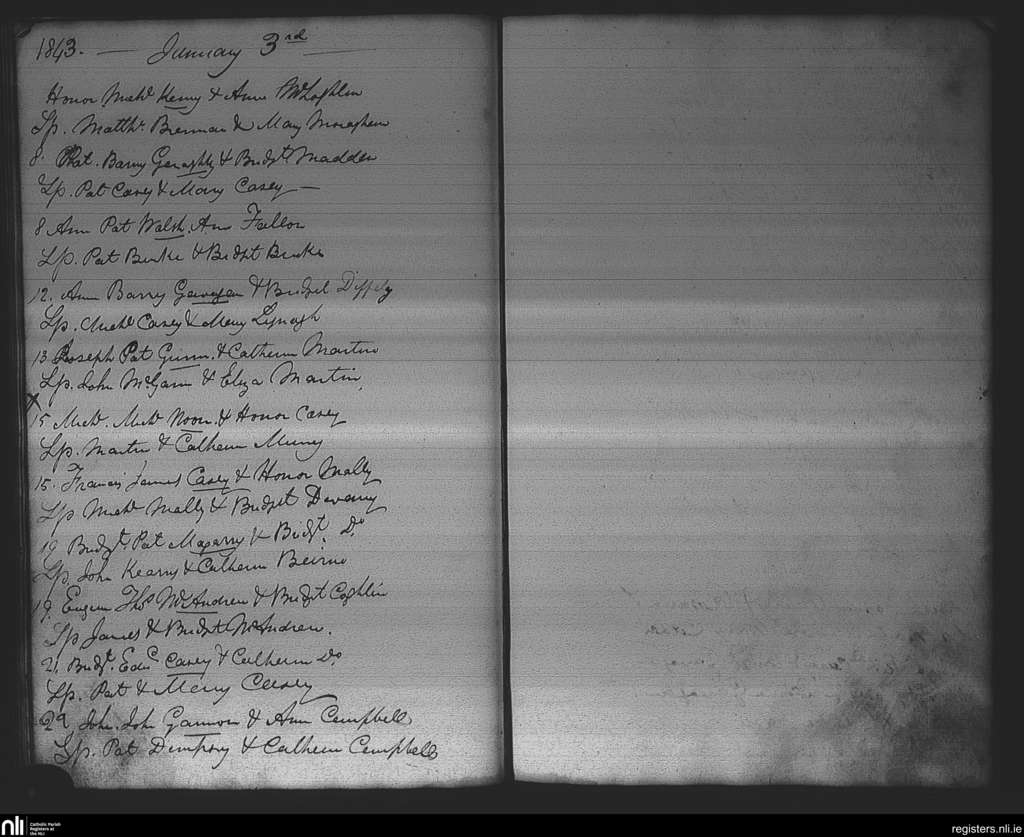 1843. — January 3rd —
Honor Michl Kenny & Ann McLoghlin
Sp. Matthw. Brennan & Mary Monaghan
8. Pat. Barny Geraghty & Bridgt Madden
Sp. Pat Casey & Mary Casey —
8 Ann Pat Walsh. Ann Fallon
Sp. Pat Burke & Bridgt Burke
12. Ann Barny Gavagan & Bridget Diffely
Sp. Michl Casey & Mary Lynagh
13 Joseph Pat Gunn. & Catherin Martin
Sp. John McGann & Eliza Martin.
X
15 Michl. Michl Noon. & Honor Casey
Sp. Martin & Catherin
15. Francis James Casey & Honor Mally
Sp Michl Mally & Bridget Devany
19 Bridgt. Pat & Bridgt. Do
Sp. John Kearny & Catherin Beirne
19. Eugene Thos McAndrew & Bridgt Coghlin
Sp James & Bridgt McAndrew.
21 Bridgt. Edwd Casey & Catherin Do
Sp. Pat & Mary Casey
29 John. John Gannon & Ann Campbell
Sp. Pat Dempsey & Catherin Campbell
nli
Catholic Parish
Registers at
the NLI
registers.nli.ie